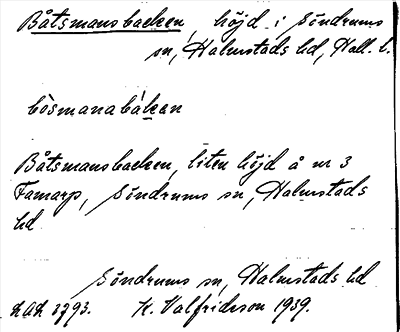 Båtsmansbacken, höjd i Söndrums
sn, Halmstads hd, Hall. l.
bòsmanabákan
Båtsmansbacken, liten höjd å nr 3
Tamarp, Söndrums sn, Halmstads
hd
Söndrums sn, Halmstads hd
3793. K. Valfridsson 1939.